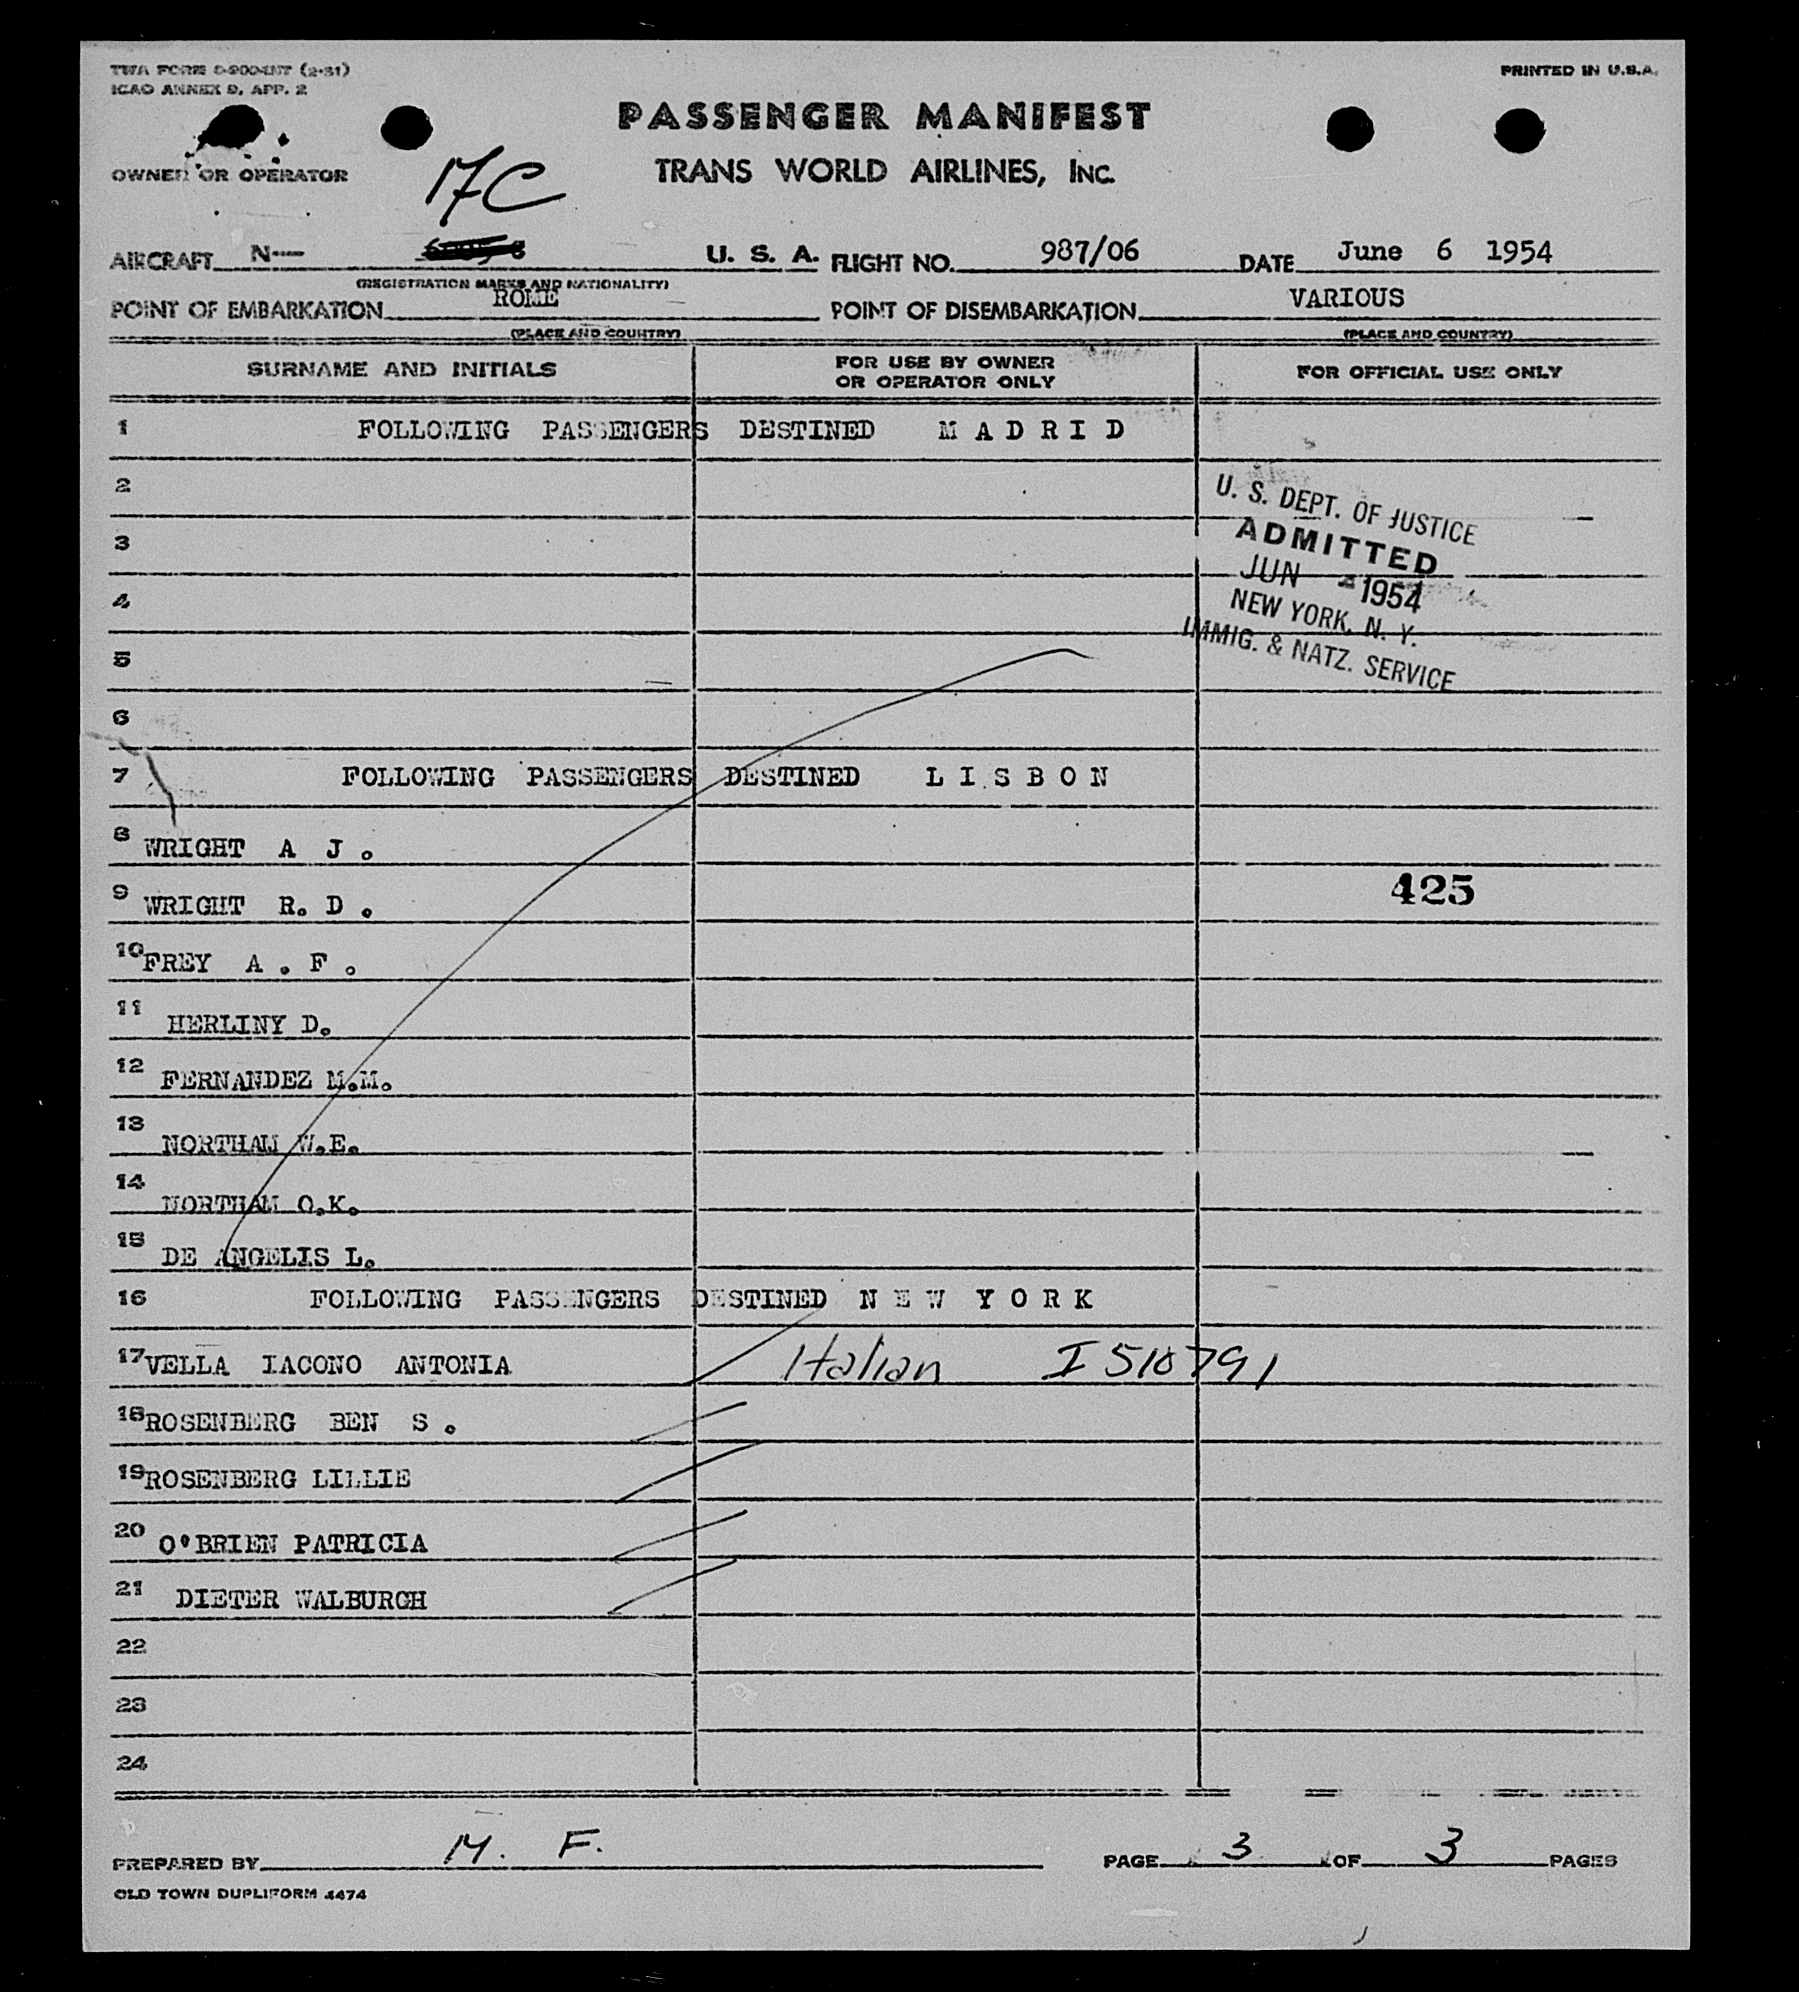 TWA FORM
ICAO ANNEX 9, APP. 2
PRINTED IN U.S.A.
PASSENGER MANIFEST
OWNER OR OPERATOR
17C
TRANS WORLD AIRLINES, INC.
AIRCRAFT N--- U. S. A. FLIGHT NO. 987/06 DATE June 6 1954
(REGISTRATION MARKS AND NATIONALITY)
POINT OF EMBARKATION ROME POINT OF DISEMBARKATION VARIOUS
(PLACE AND COUNTRY) (PLACE AND COUNTRY)
SURNAME AND INITIALS FOR USE BY OWNER OR OPERATOR ONLY FOR OFFICIAL USE ONLY
1 FOLLOWING PASSENGERS DESTINED M A D R I D
2
U. S. DEPT. OF JUSTICE
3
ADMITTED
JUN 1954
4
NEW YORK, N. Y.
IMMIG. & NATZ. SERVICE
5
6
7 FOLLOWING PASSENGERS DESTINED L I S B O N
8 WRIGHT A J .
9 WRIGHT R. D . 425
10 FREY A . F .
11 HERLINY D.
12 FERNANDEZ M.M.
13 NORTHAM W.E.
14 NORTHAM O.K.
15 DE ANGELIS L.
16 FOLLOWING PASSENGERS DESTINED N E W Y O R K
17 VELLA IACONO ANTONIA Italian I 510791
18 ROSENBERG BEN S .
19 ROSENBERG LILLIE
20 O'BRIEN PATRICIA
21 DIETER WALBURGH
22
23
24
PREPARED BY M. F. PAGE 3 OF 3 PAGES
OLD TOWN DUPLIFORM 4474